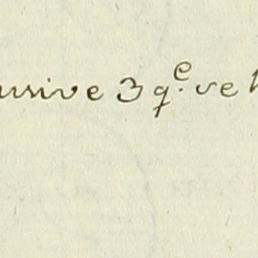 usive 3 q.e ve